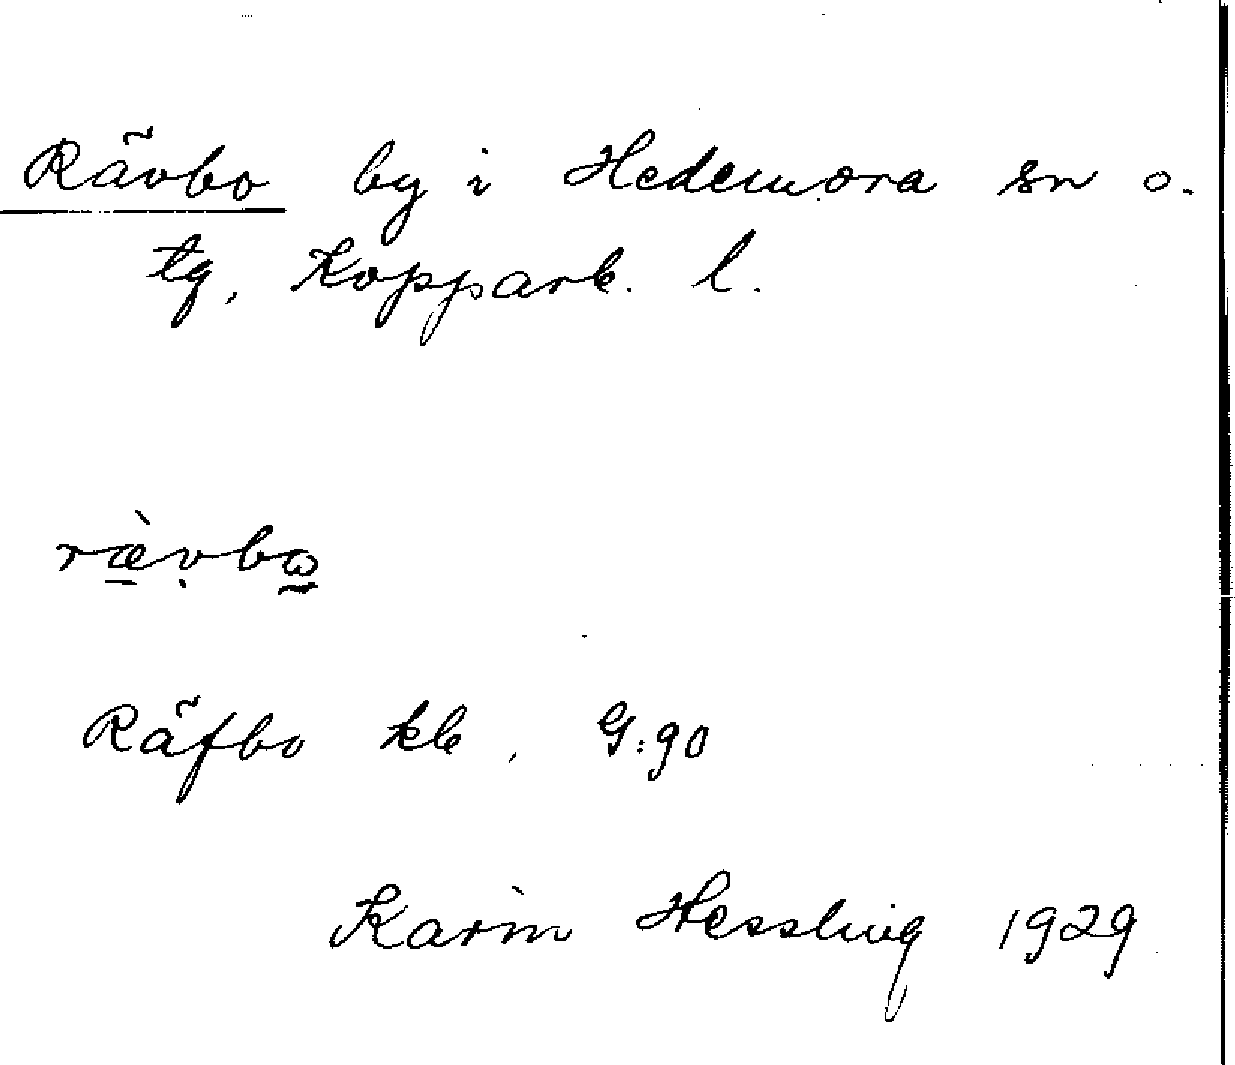 Rävbo by i Hedemora sn o.
tg, Koppark. l.
rævbω
Räfbo kb, G:90
Karin Hessling 1929